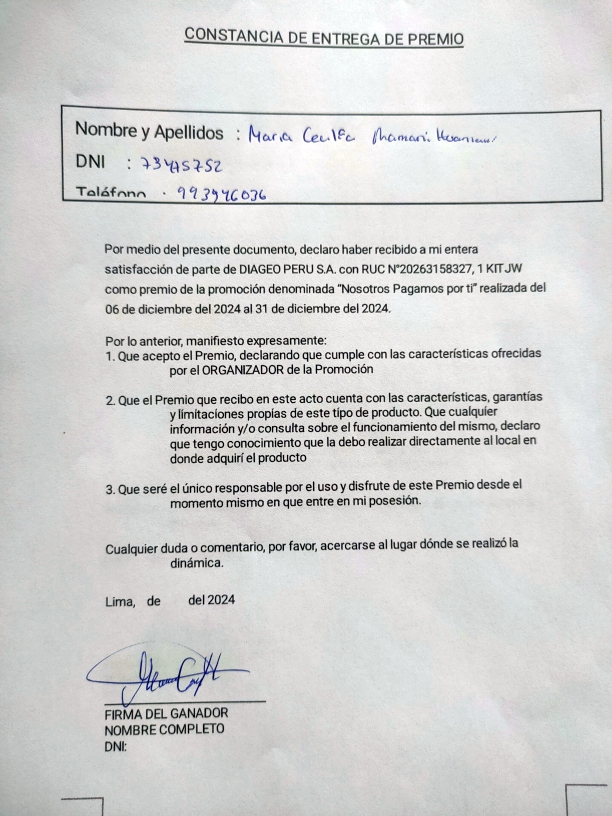 CONSTANCIA DE ENTREGA DE PREMIO
Nombre y Apellidos : Maria Cecilia Mamani
DNI : 73475752
Teléfono : 993946036
Por medio del presente documento, declaro haber recibido a mi entera
satisfacción de parte de DIAGEO PERU S.A. con RUC N°20263158327, 1 KIT JW
como premio de la promoción denominada "Nosotros Pagamos por ti" realizada del
06 de diciembre del 2024 al 31 de diciembre del 2024.
Por lo anterior, manifiesto expresamente:
1. Que acepto el Premio, declarando que cumple con las características ofrecidas
por el ORGANIZADOR de la Promoción
2. Que el Premio que recibo en este acto cuenta con las características, garantías
y limitaciones propias de este tipo de producto. Que cualquier
información y/o consulta sobre el funcionamiento del mismo, declaro
que tengo conocimiento que la debo realizar directamente al local en
donde adquirí el producto
3. Que seré el único responsable por el uso y disfrute de este Premio desde el
momento mismo en que entre en mi posesión.
Cualquier duda o comentario, por favor, acercarse al lugar dónde se realizó la
dinámica.
Lima, de del 2024
FIRMA DEL GANADOR
NOMBRE COMPLETO
DNI: